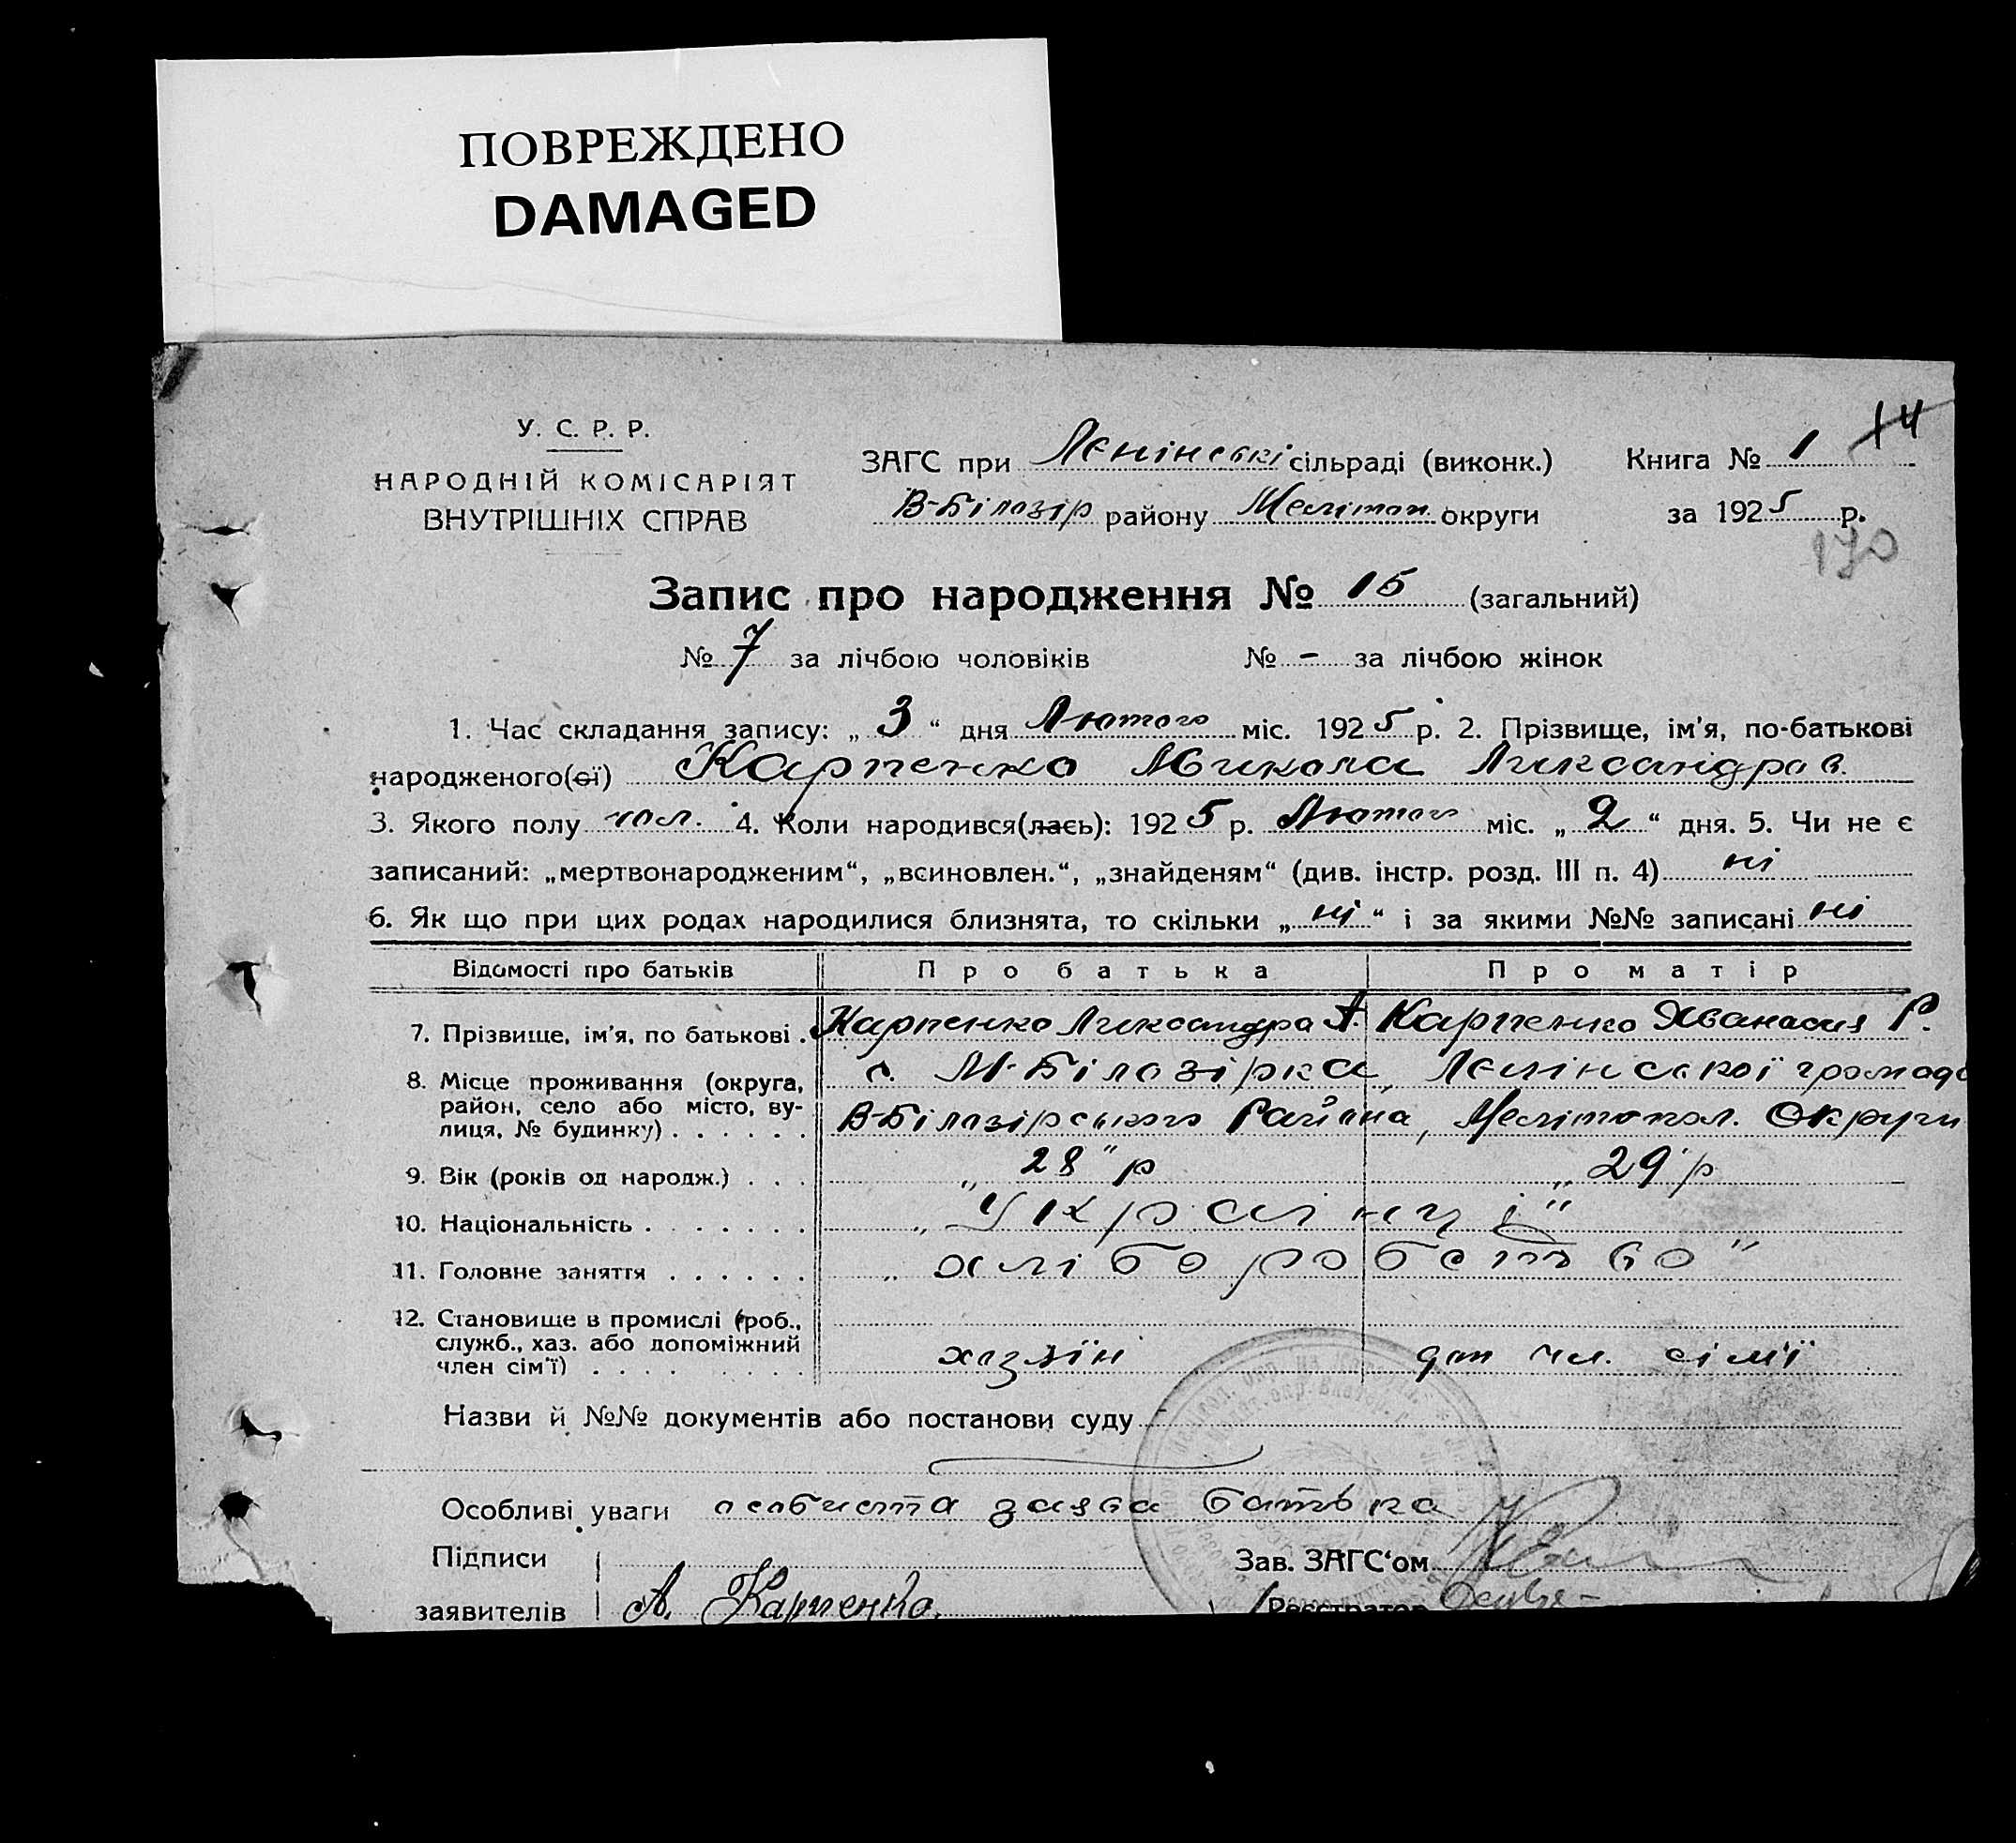 ПОВРЕЖДЕНО
DAMAGED
У. С. Р. Р.
НАРОДНІЙ КОМІСАРІЯТ
ВНУТРІШНІХ СПРАВ
ЗАГС при Лєнінські сільраді (виконк.)
В-Білозір району Меліто﻿п. округи
Книга № 1 14
за 1925 р.
170
Запис про народження № 15 (загальний)
№ 7 за лічбою чоловіків № - за лічбою жінок
1. Час складання запису: „3“ дня Лютого міс. 1925 р. 2. Прізвище, ім'я, по-батькові
народженого(ої) Карпенко Микола Ликсандров.
3. Якого полу чол. 4. Коли народився(лась): 1925 р. Лютого міс. „2“ дня. 5. Чи не є
записаний: „мертвонародженим“, „всиновлен.“, „знайденям“ (див. інстр. розд. III п. 4) ні
6. Як що при цих родах народилися близнята, то скільки „ні“ і за якими №№ записані ні
Відомості про батьків Про батька Про матір
7. Прізвище, ім'я, по батькові . Карпенко Ликсандра А. Карпенко Хванасия Г.
8. Місце проживання (округа, с. М-Білозірка, Лєнінської громади
район, село або місто, ву- В-Білозірського Района, Мелітопол. Округи
лиця, № будинку) . . . . . .
9. Вік (років од народж.) . . . „28“ р „29“ р
10. Національність . . . . . . . „Українці“
11. Головне заняття . . . . . . „хліборобство“
12. Становище в промислі (роб.,
служб., хаз. або допоміжний хазяїн доп чл. сімї
член сім'ї) . . . . . . . . .
Назви й №№ документів або постанови суду
Особливі уваги особиста заява батька
Підписи Зав. ЗАГС'ом
заявителів А. Карпенко. Реєстратор